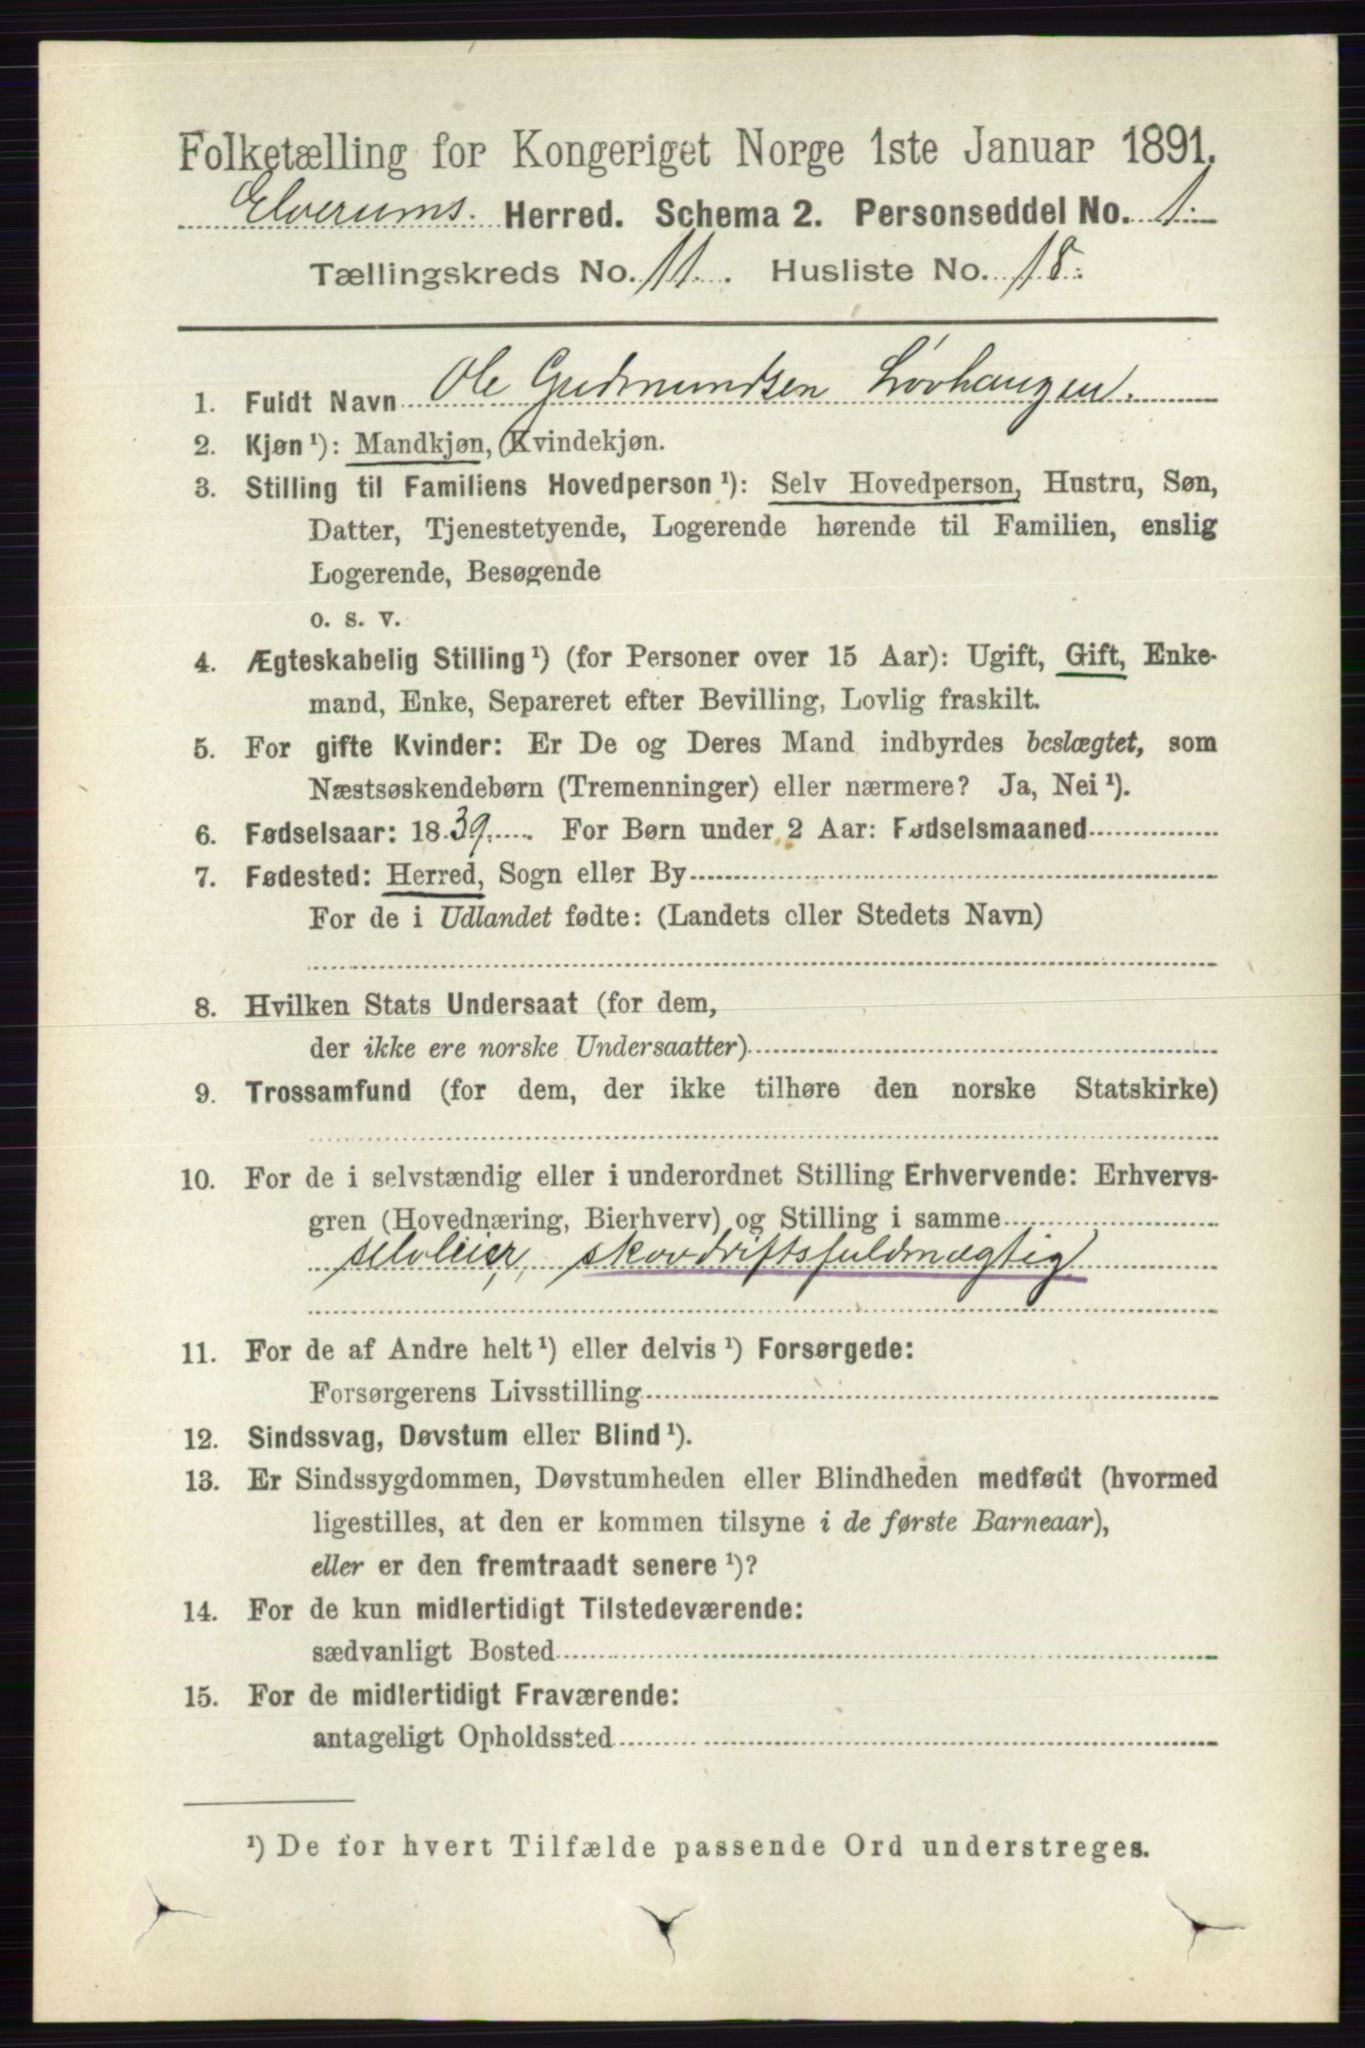 Folketælling for Kongeriget Norge 1ste Januar 1891.
Elverums. Herred. Schema 2. Personseddel No. 1.
Tællingskreds No. 11. Husliste No. 18.
1. Fuldt Navn Ole Gudmundsen Lövhaugen.
2. Kjøn ¹): Mandkjøn, Kvindekjøn.
3. Stilling til Familiens Hovedperson ¹): Selv Hovedperson, Hustru, Søn,
Datter, Tjenestetyende, Logerende hørende til Familien, enslig
Logerende, Besøgende
o. s. v.
4. Ægteskabelig Stilling ¹) (for Personer over 15 Aar): Ugift, Gift, Enke-
mand, Enke, Separeret efter Bevilling, Lovlig fraskilt.
5. For gifte Kvinder: Er De og Deres Mand indbyrdes beslægtet, som
Næstsøskendebørn (Tremenninger) eller nærmere? Ja, Nei ¹).
6. Fødselsaar: 1839. For Børn under 2 Aar: Fødselsmaaned
7. Fødested: Herred, Sogn eller By
For de i Udlandet fødte: (Landets eller Stedets Navn)
8. Hvilken Stats Undersaat (for dem,
der ikke ere norske Undersaatter)
9. Trossamfund (for dem, der ikke tilhøre den norske Statskirke)
10. For de i selvstændig eller i underordnet Stilling Erhvervende: Erhvervs-
gren (Hovednæring, Bierhverv) og Stilling i samme
selveier, skovdriftsfuldmægtig
11. For de af Andre helt ¹) eller delvis ¹) Forsørgede:
Forsørgerens Livsstilling
12. Sindssvag, Døvstum eller Blind ¹).
13. Er Sindssygdommen, Døvstumheden eller Blindheden medfødt (hvormed
ligestilles, at den er kommen tilsyne i de første Barneaar),
eller er den fremtraadt senere ¹)?
14. For de kun midlertidigt Tilstedeværende:
sædvanligt Bosted
15. For de midlertidigt Fraværende:
antageligt Opholdssted
¹) De for hvert Tilfælde passende Ord understreges.